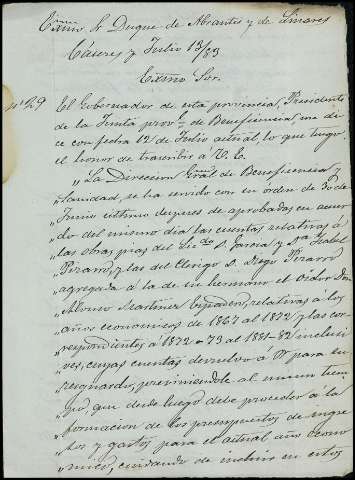 Exmo Sr Duque de Abrantes y de Linares
Cáceres y Julio 13/83
Exmo Sor.
nº 29 El Gobernador de esta provincia, Presidente
de la Junta provl. de Beneficencia, me di
ce con fecha 12 de Julio actual, lo que tengo
el honor de trascribir á V. E.
"La Direccion Gral de Beneficencia y
"Sanidad, se ha servido con su orden de 30 de
"Junio último despues de aprobadas en acuer
"do del mismo dia las cuentas relativas á
"las obras pias del Licdo D. Garcia y Dª Isabel
"Pizarro, y las del Clerigo D. Diego Pizarro
"agregada á la de su hermano el Oidor Don
"Alonso Martinez relativas á los
"años economicos de 1867 al 1872 y las cor
"respondientes á 1872-73 al 1881-82 inclusi
"ves, cuyas cuentas devuelvo á V. para su
"resguardo, previniendole al mismo tiem
"po que desde luego debe proceder á la
"formacion de los presupuestos de ingre
"sos y gastos para el actual año econo
"mico, cuidando de incluir en estos